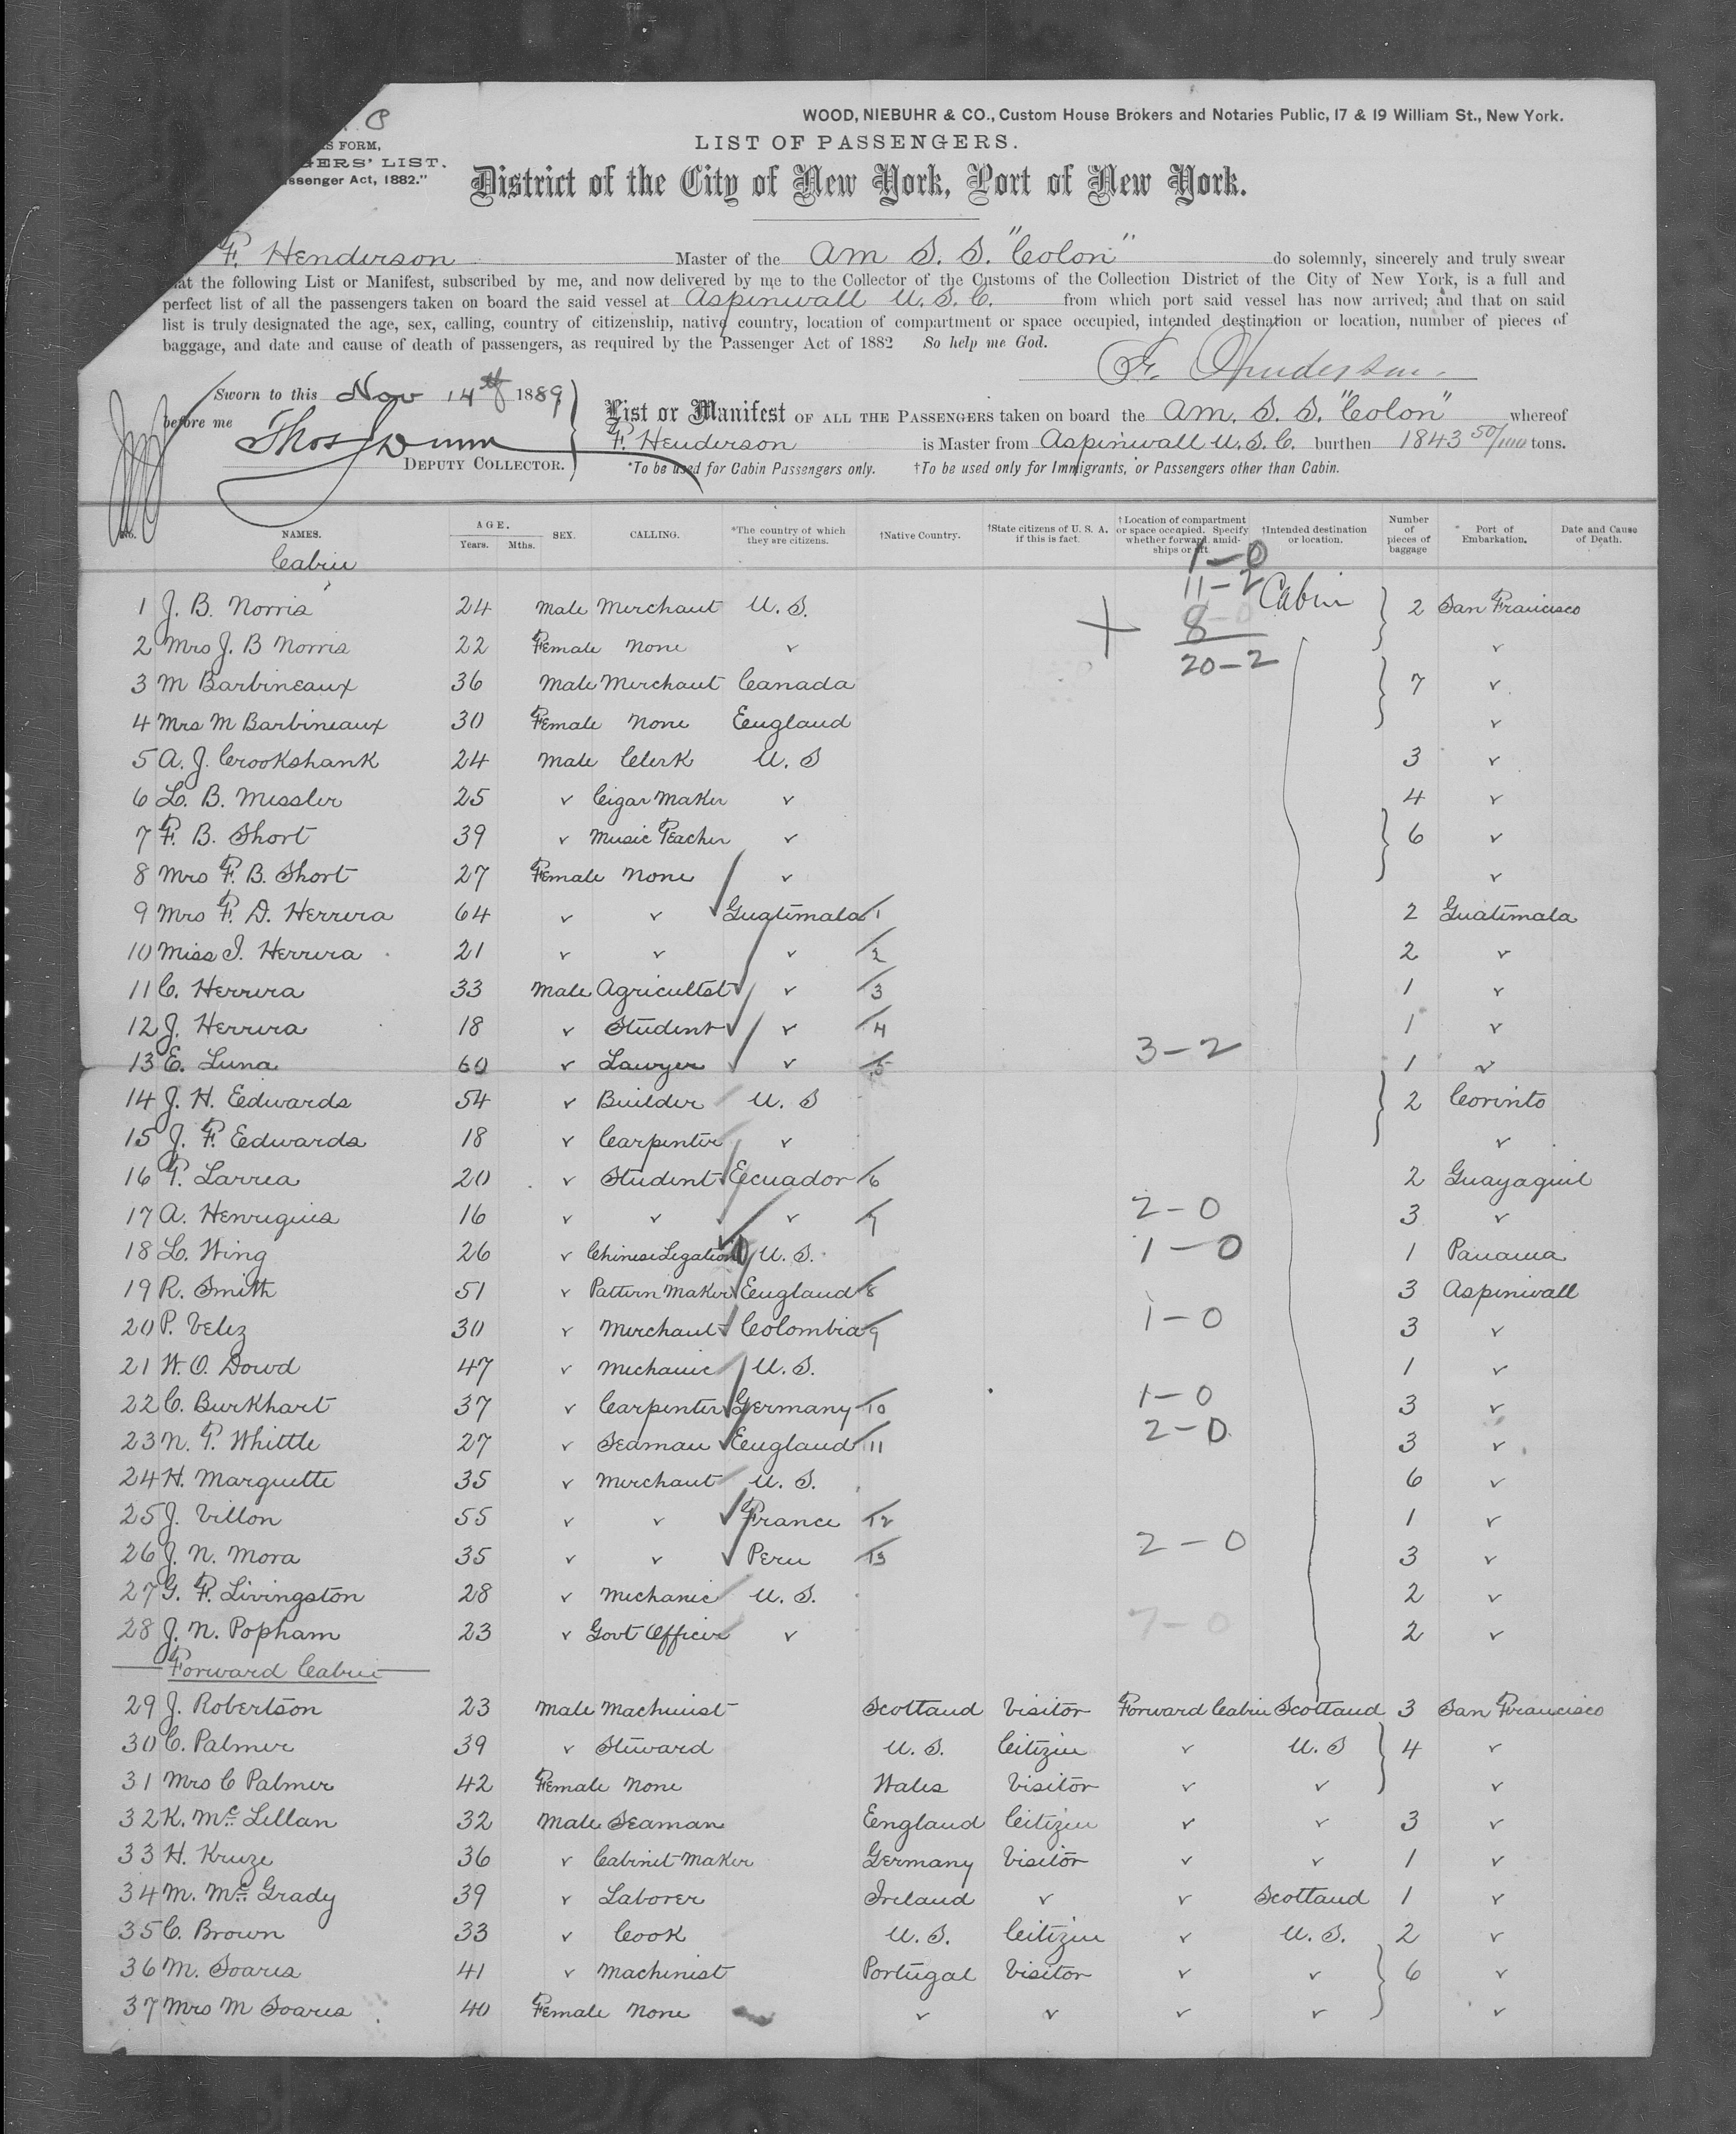 WOOD, NIEBUHR & CO., Custom House Brokers and Notaries Public, 17 & 19 William St., New York.
S FORM,
GERS' LIST.
ssenger Act, 1882."
LIST OF PASSENGERS.
District of the City of New York, Port of New York.
F. Henderson Master of the Am S. S. "Colon" do solemnly, sincerely and truly swear
at the following List or Manifest, subscribed by me, and now delivered by me to the Collector of the Customs of the Collection District of the City of New York, is a full and
perfect list of all the passengers taken on board the said vessel at Aspinwall U. S. C. from which port said vessel has now arrived; and that on said
list is truly designated the age, sex, calling, country of citizenship, native country, location of compartment or space occupied, intended destination or location, number of pieces of
baggage, and date and cause of death of passengers, as required by the Passenger Act of 1882 So help me God.
F. Henderson
Sworn to this Nov 14th 1889
before me Thos J Dunn
DEPUTY COLLECTOR.
List or Manifest OF ALL THE PASSENGERS taken on board the Am. S. S. "Colon" whereof
F. Henderson is Master from Aspinwall U. S. C. burthen 1843 50/100 tons.
*To be used for Cabin Passengers only. †To be used only for Immigrants, or Passengers other than Cabin.
No. NAMES. AGE. Years. Mths. SEX. CALLING. *The country of which they are citizens. †Native Country. †State citizens of U. S. A. if this is fact. †Location of compartment or space occupied. Specify whether forward, amidships or aft. †Intended destination or location. Number of pieces of baggage Port of Embarkation. Date and Cause of Death.
Cabin
1-0
11-2
8-0
20-2
1 J. B. Norris 24 Male Merchant U. S. Cabin 2 San Francisco
2 Mrs J. B Norris 22 Female None " "
3 M Barbineaux 36 Male Merchant Canada 7 "
4 Mrs M Barbineaux 30 Female None England "
5 A. J. Crookshank 24 Male Clerk U. S 3 "
6 L. B. Messler 25 " Cigar Maker " 4 "
7 F. B. Short 39 " Music Teacher " 6 "
8 Mrs F. B. Short 27 Female None " "
9 Mrs F. D. Herrera 64 " " Guatimala 1 2 Guatimala
10 Miss I. Herrera 21 " " " 2 2 "
11 C. Herrera 33 Male Agricultst " 3 1 "
12 J. Herrera 18 " Student " 4 1 "
13 E. Luna 60 " Lawyer " 5 3-2 1 "
14 J. H. Edwards 54 " Builder U. S 2 Corinto
15 J. F. Edwards 18 " Carpenter " "
16 T. Larrea 20 " Student Ecuador 6 2 Guayaquil
17 A. Henriques 16 " " " 7 2-0 3 "
18 L. Wing 26 " Chinese Legation U. S. 1-0 1 Panama
19 R. Smith 51 " Pattern Maker England 8 3 Aspinwall
20 P. Velez 30 " Merchant Colombia 9 1-0 3 "
21 W. O. Dowd 47 " Mechanic U. S. 1 "
22 C. Burkhart 37 " Carpenter Germany 10 1-0 3 "
23 N. T. Whittle 27 " Seaman England 11 2-0 3 "
24 H. Marquette 35 " Merchant U. S. 6 "
25 J. Villon 55 " " France 12 1 "
26 J. N. Mora 35 " " Peru 13 2-0 3 "
27 G. F. Livingston 28 " Mechanic U. S. 2 "
28 J. N. Popham 23 " Govt Officer " 7-0 2 "
Forward Cabin
29 J. Robertson 23 Male Machinist Scotland Visitor Forward Cabin Scotland 3 San Francisco
30 C. Palmer 39 " Steward U. S. Citizen " U. S 4 "
31 Mrs C Palmer 42 Female None Wales Visitor " " "
32 K. Mc Lellan 32 Male Seaman England Citizen " " 3 "
33 H. Kruze 36 " Cabinet Maker Germany Visitor " " 1 "
34 M. Mc Grady 39 " Laborer Ireland " " Scotland 1 "
35 C. Brown 33 " Cook U. S. Citizen " U. S. 2 "
36 M. Soares 41 " Machinist Portugal Visitor " " 6 "
37 Mrs M Soares 40 Female None " " " " "